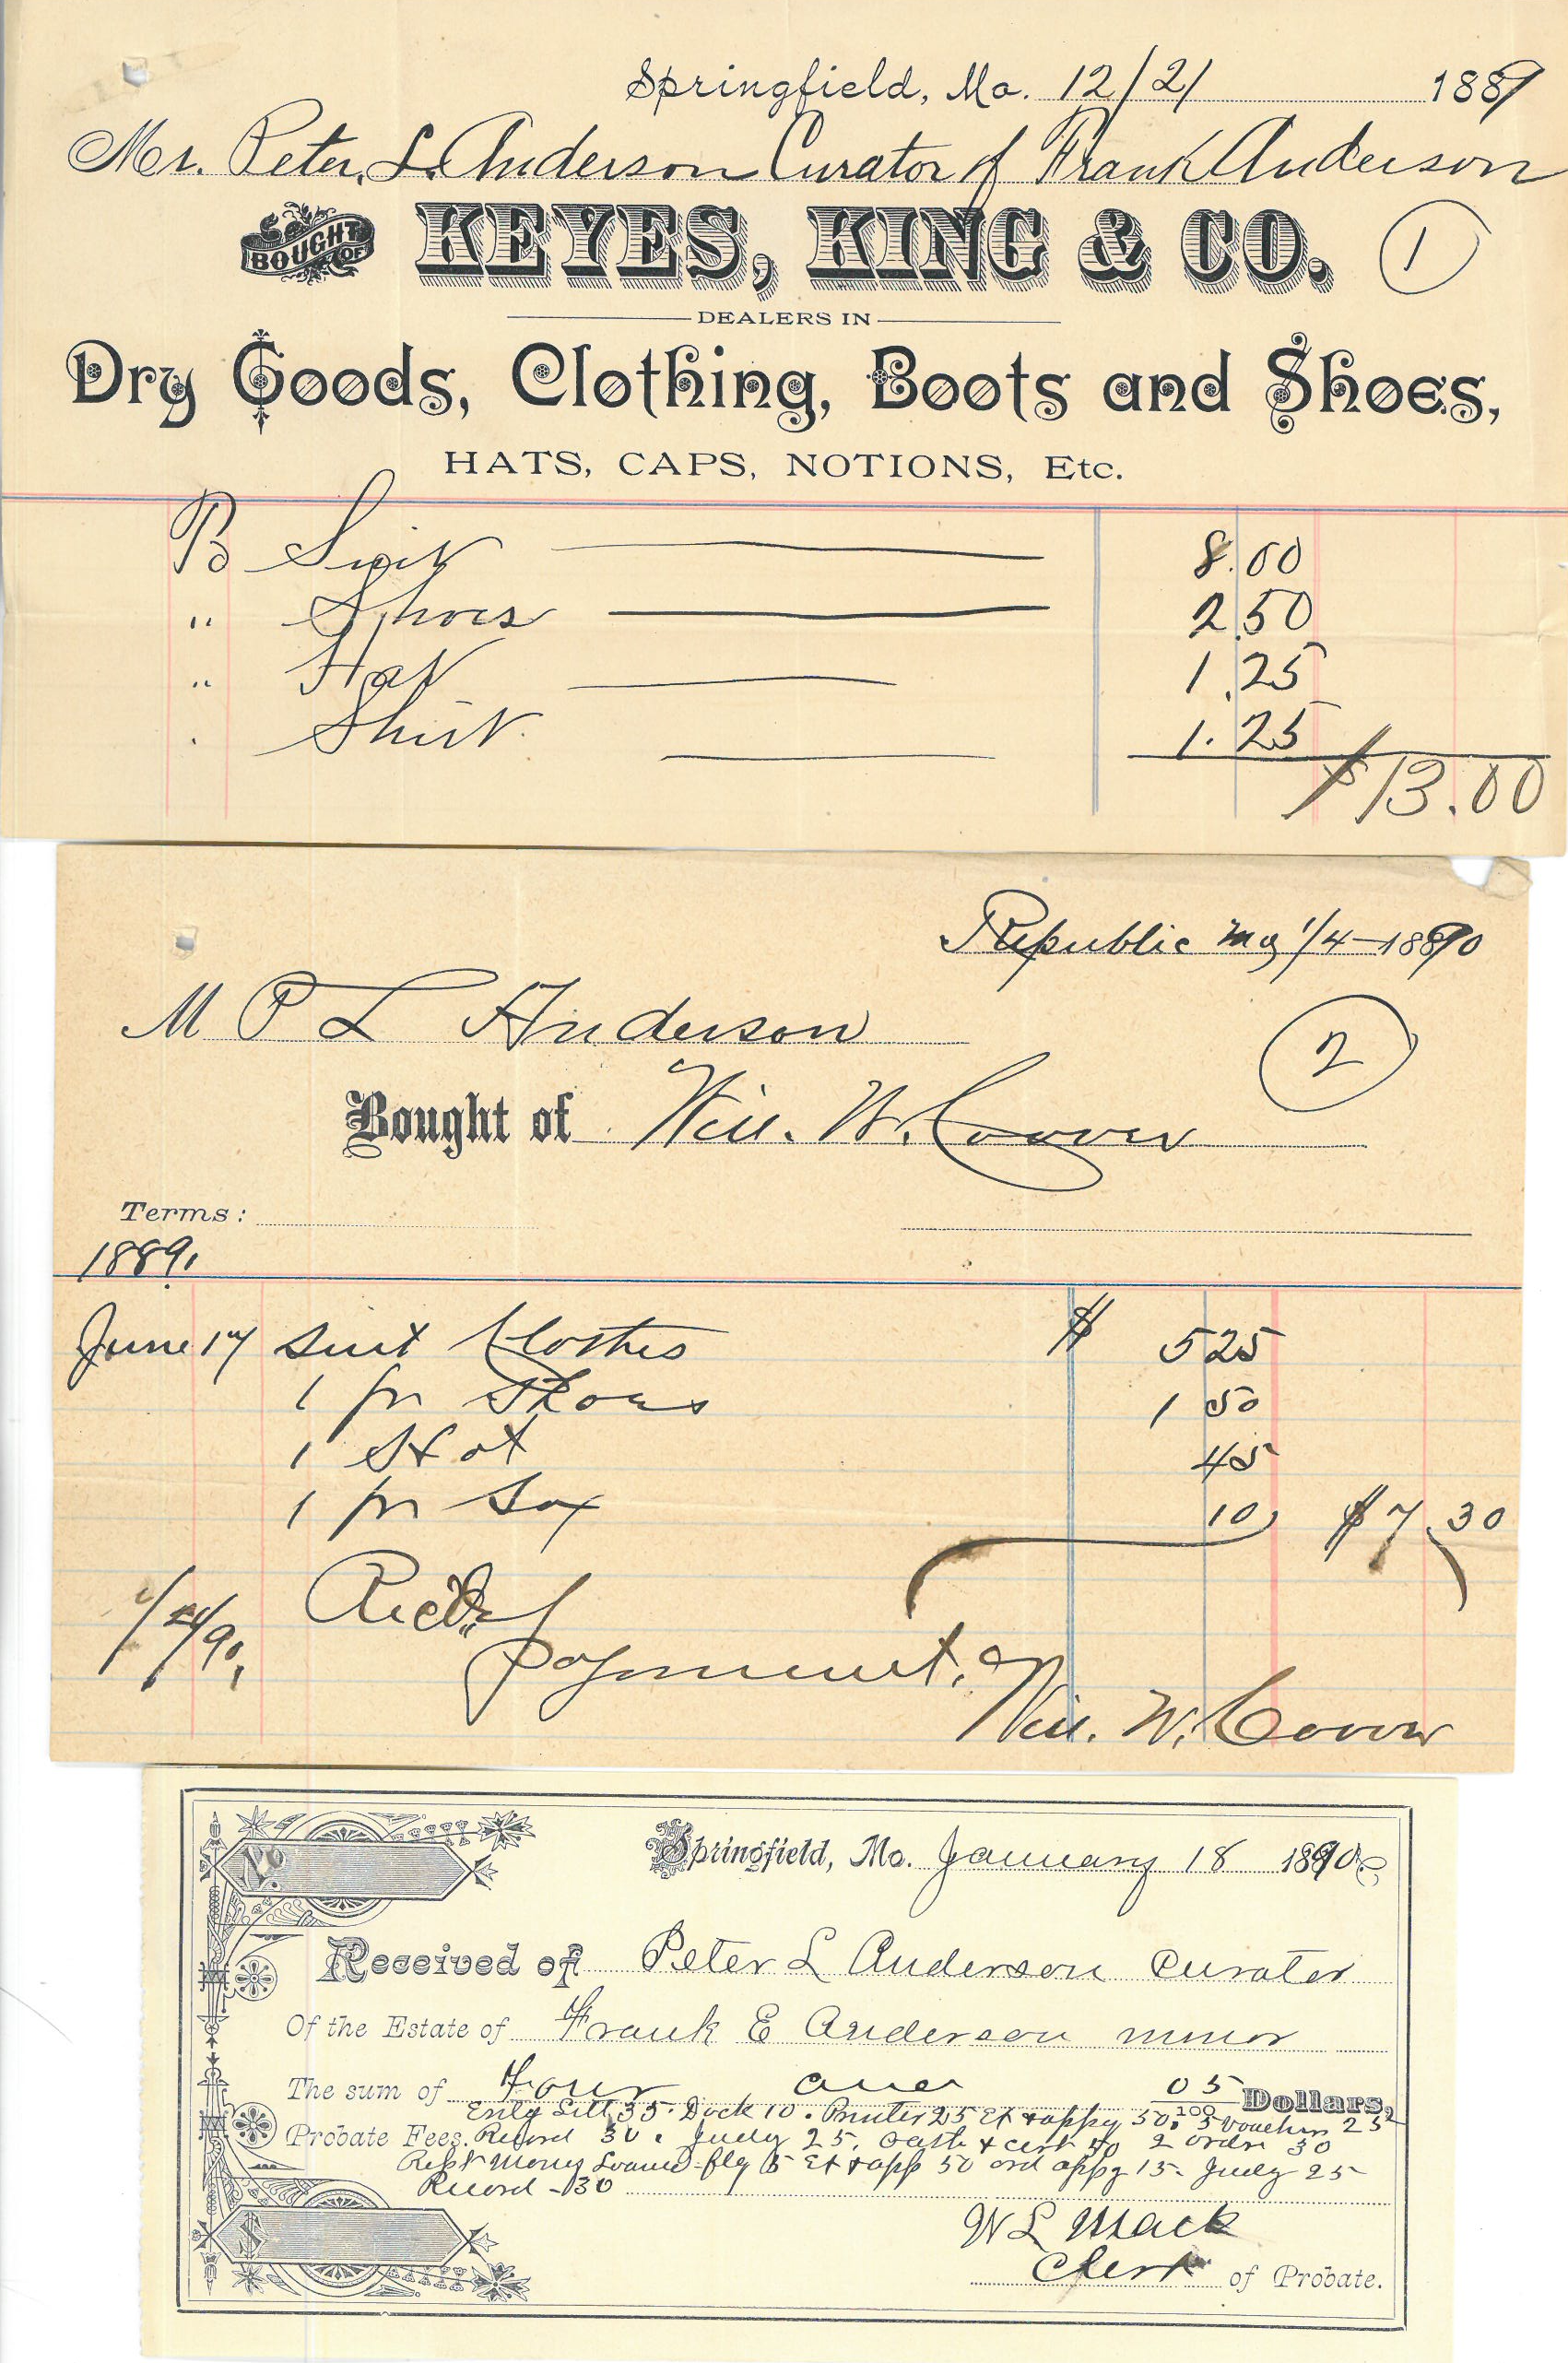 Springfield, Mo. 12/21 1889
Mr. Peter L. Anderson Curator of Frank Anderson
BOUGHT OF KEYES, KING & CO. 1
DEALERS IN
Dry Goods, Clothing, Boots and Shoes,
HATS, CAPS, NOTIONS, Etc.
Suit 8.00
" Shoes 2.50
" Hat 1.25
Shirt. 1.25
$13.00
Republic Mo 1/4-1890
M P L Anderson
2
Bought of Will. W. Coover
Terms:
1889.
June 17 Suit Clothes $ 5 25
1 pr Shoes 1 50
1 Hat 45
1 pr Sox 10 $7.30
Recd
Payment.
Will. W. Coover
No.
Springfield, Mo. January 18 1890
Received of Peter L Anderson Curator
Of the Estate of Frank E Anderson minor
The sum of Four and 05/100 Dollars,
Sett 35. Dock 10. Printer 25 Ex & appg 50. 5 Vouchers 25
Probate Fees. Record 30. Judg 25. Oath & cert 40 2 ordr 30
Rept Money Loaned flg 15 Ex & app 50 ord appg 15. Judg 25
Record - 30
$
W L Mack
Clerk of Probate.